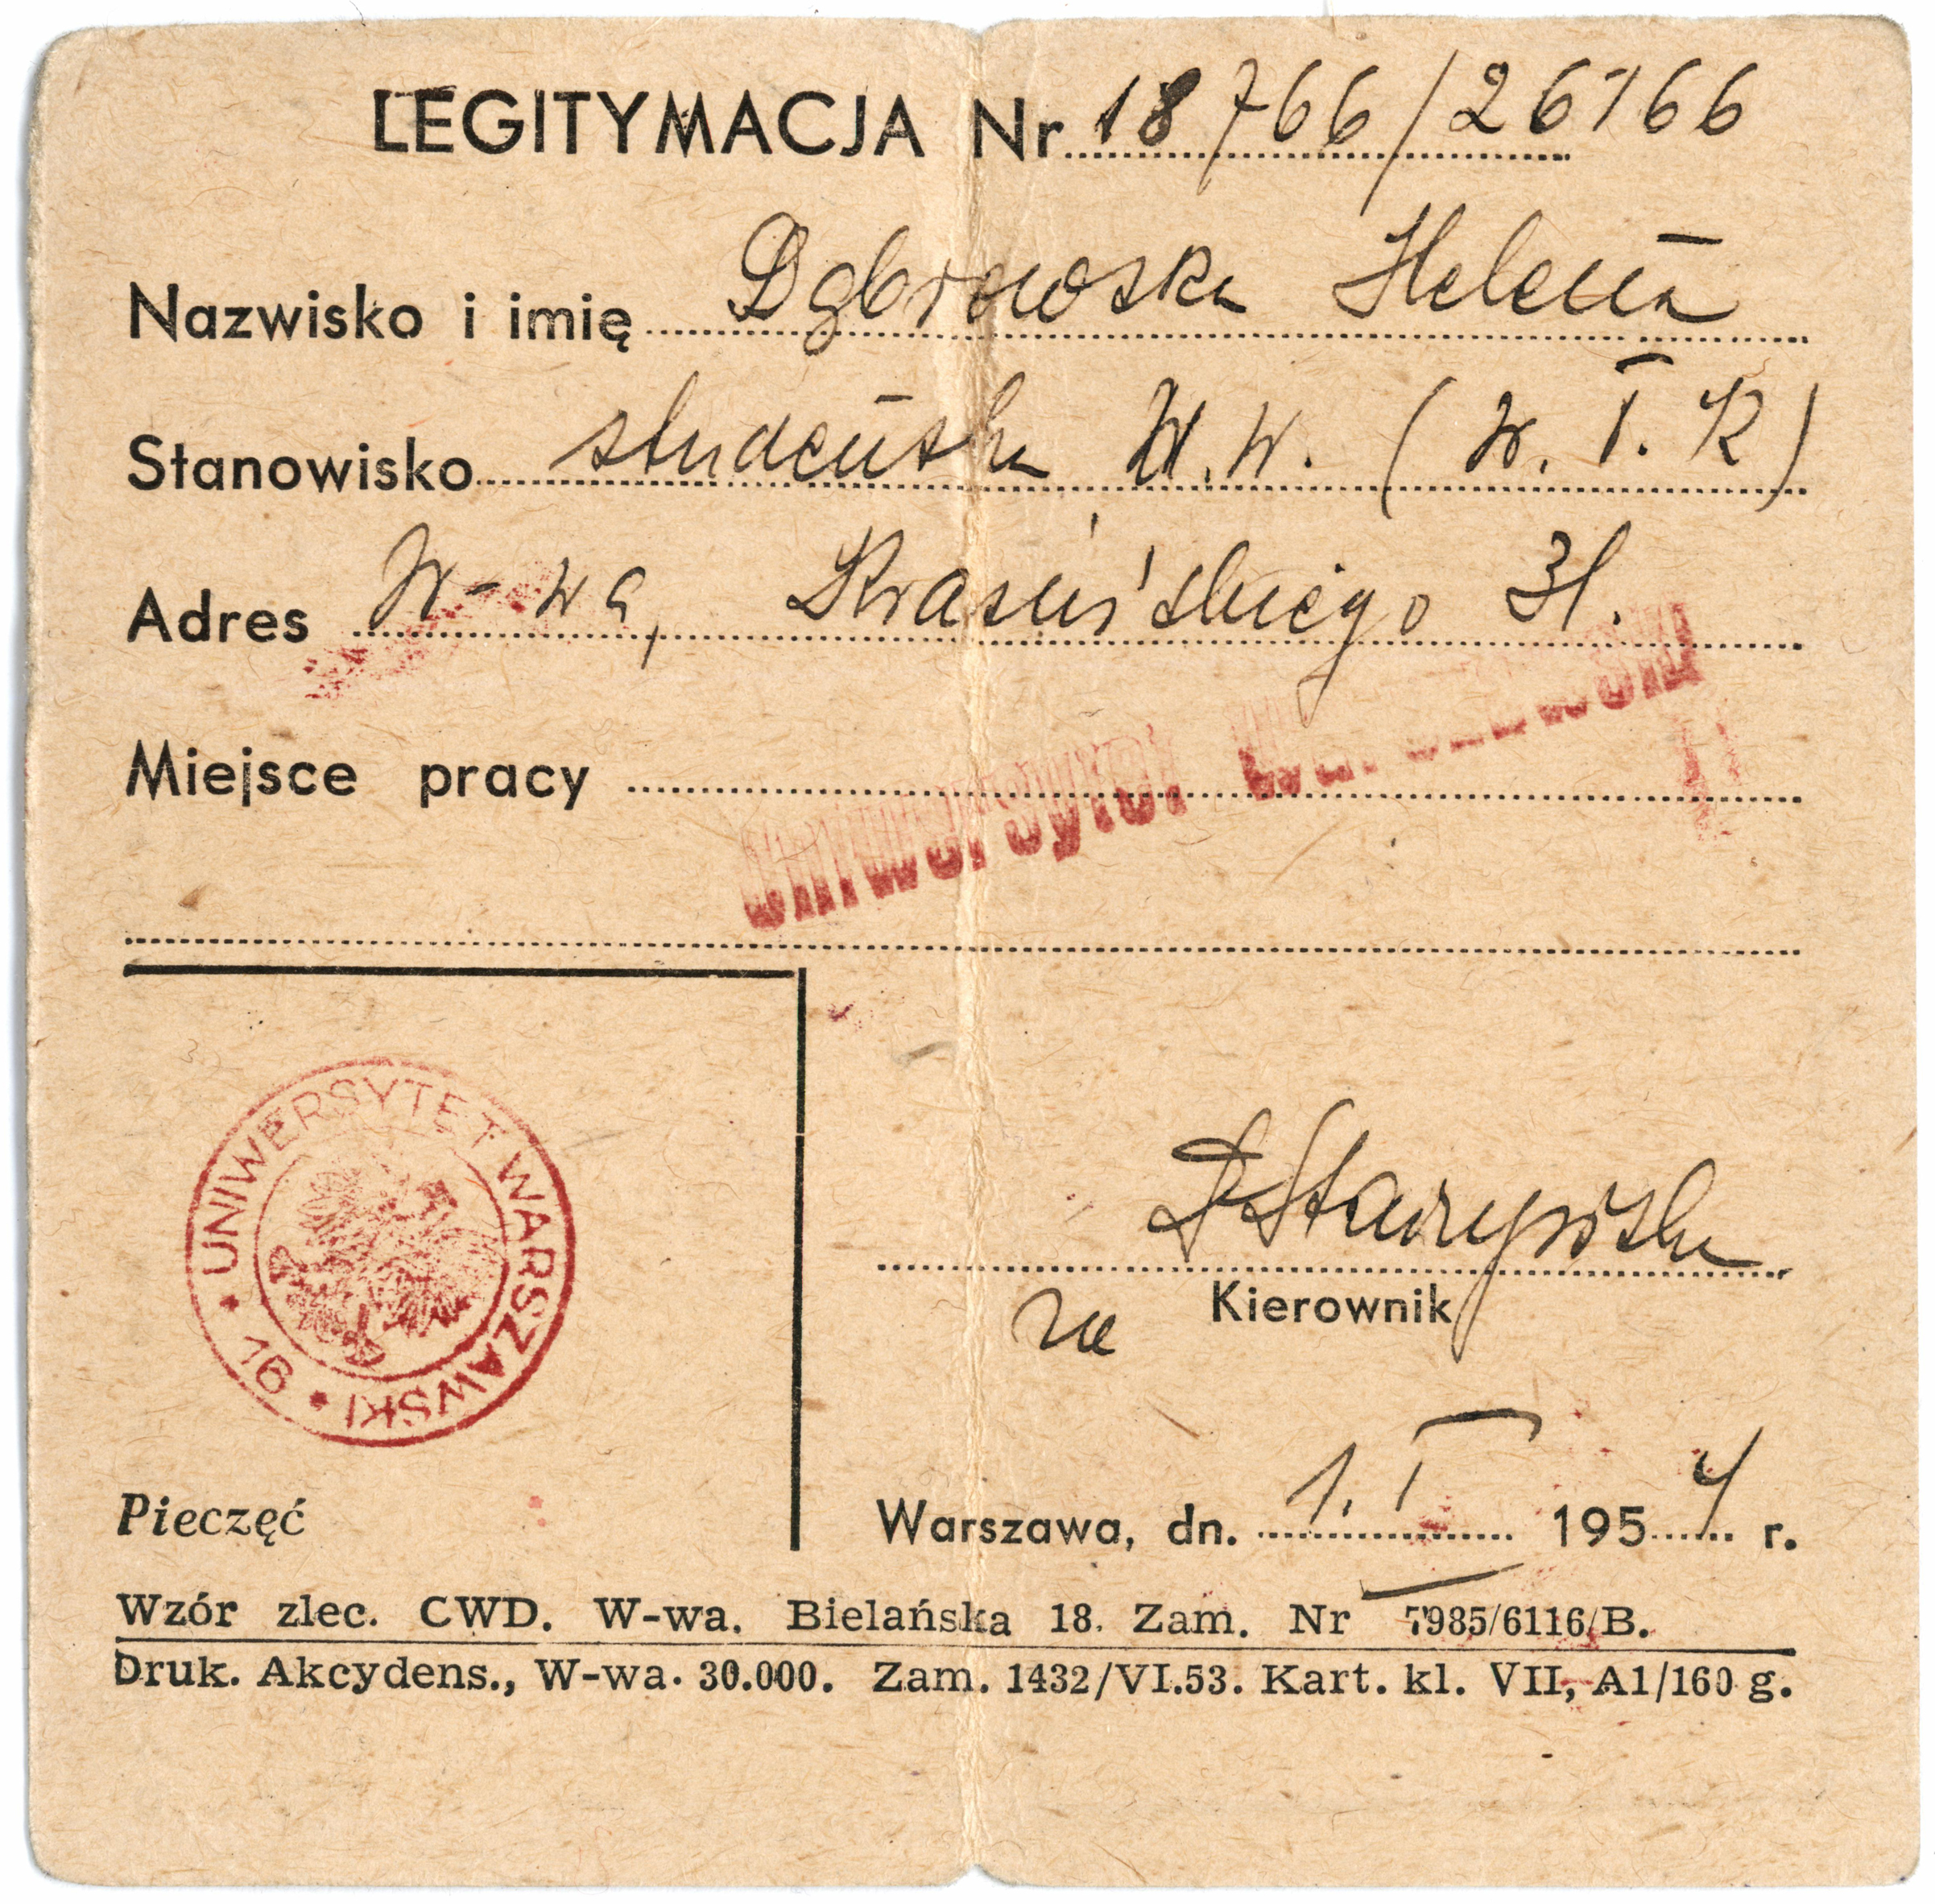 LEGITYMACJA Nr 18766/26166
Nazwisko i imię Dąbrowska Helena
Stanowisko studentka U.W. (W. I. R)
Adres W-wa, Krasińskiego 31.
Miejsce pracy
Uniwersytet Warszawski
UNIWERSYTET WARSZAWSKI * 16 *
za Kierownik
Pieczęć
Warszawa, dn. 1. I 1954 r.
Wzór zlec. CWD. W-wa. Bielańska 18. Zam. Nr 7985/6116/B.
Druk. Akcydens., W-wa. 30.000. Zam. 1432/VI.53. Kart. kl. VII, A1/160 g.